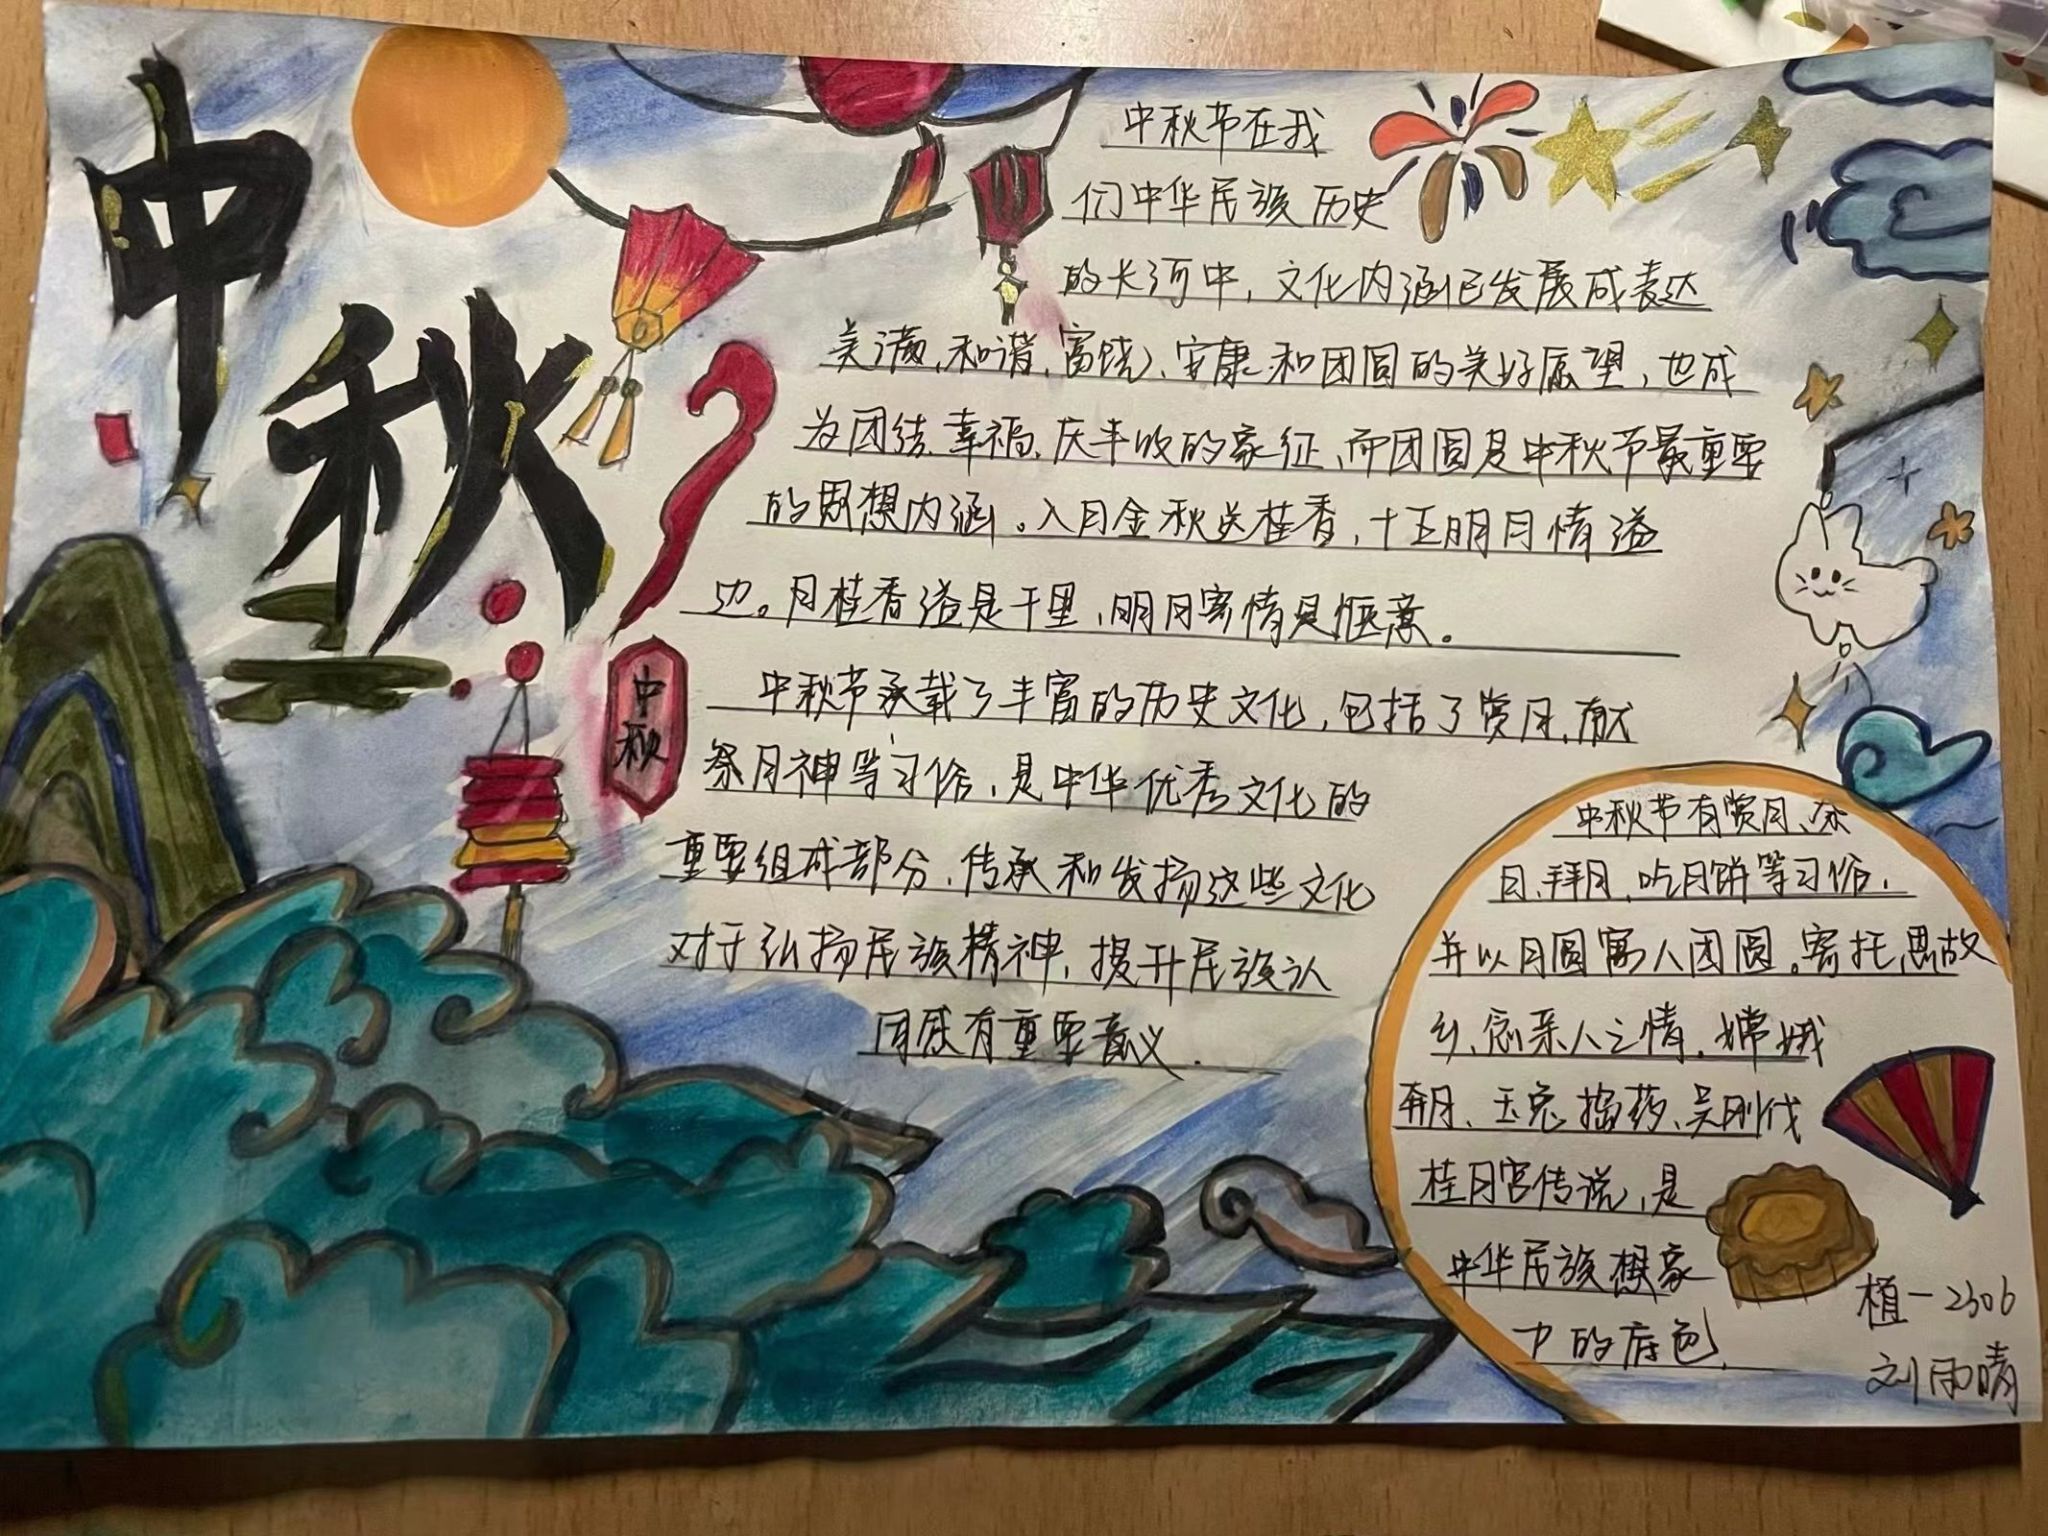 中秋
中秋节在我
们中华民族历史
的长河中，文化内涵已发展成表达
美满、和谐、富饶、安康和团圆的美好愿望，也成
为团结、幸福、庆丰收的象征，而团圆是中秋节最重要
的思想内涵。八月金秋送桂香，十五明月情溢
边。月桂香溢是千里，明月寄情是惬意。
中秋
中秋节承载了丰富的历史文化，包括了赏月、献
祭月神等习俗，是中华优秀文化的
重要组成部分，传承和发扬这些文化
对于弘扬民族精神，提升民族认
同感有重要意义.
中秋节有赏月、祭
月、拜月、吃月饼等习俗，
并以月圆寓人团圆。寄托思故
乡，念亲人之情，嫦娥
奔月、玉兔捣药、吴刚伐
桂月宫传说，是
中华民族想象
力的底色.
植一2306
刘雨晴